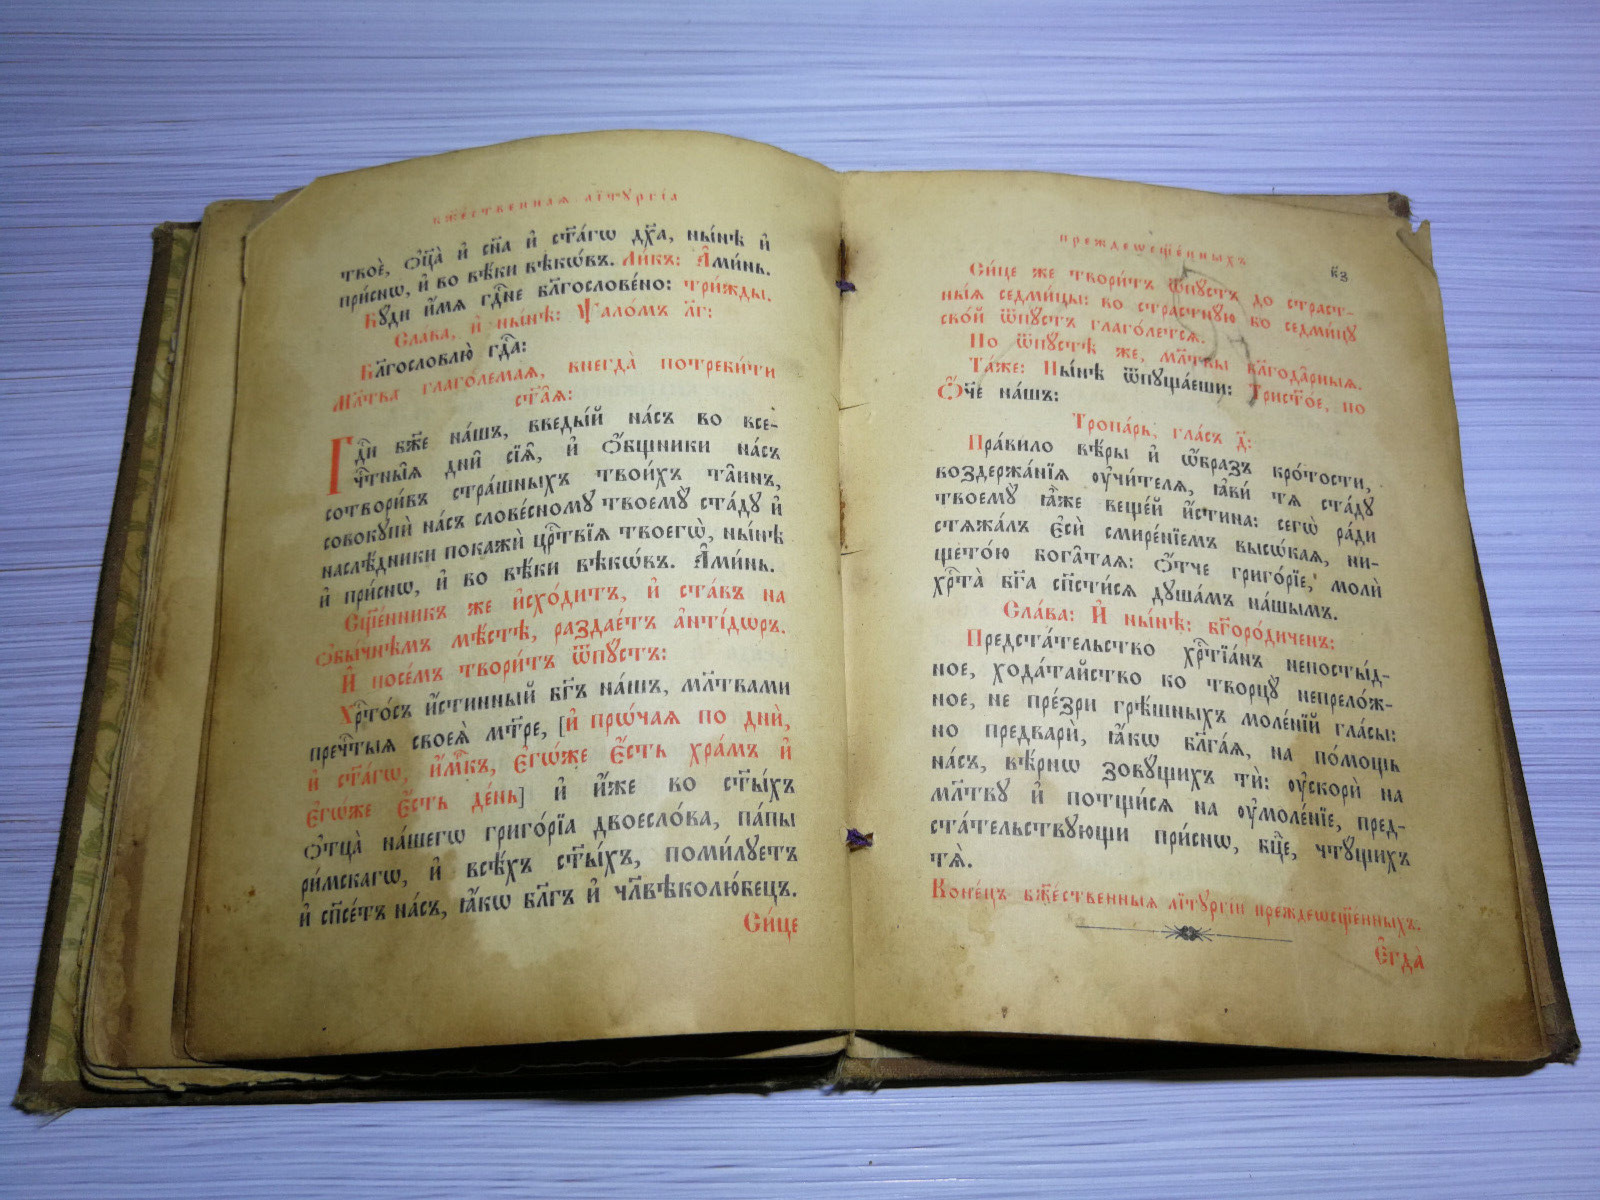 бж҃е́ственнаѧ лїтꙋргі́а
твоѐ, ѻ҆ц҃а̀ и҆ сн҃а и҆ ст҃а́гѡ дх҃а, ны́нѣ и҆
при́снѡ, и҆ во вѣ́ки вѣкѡ́въ. Ли́къ: А҆ми́нь.
Бꙋ́ди и҆́мѧ гдⷭ҇не блгⷭ҇ове́но: три́жды.
Сла́ва, и҆ ны́нѣ: Ѱало́мъ л҃г:
Блгⷭ҇ловлю̀ гдⷭ҇а:
Мл҃тва глаго́лемаѧ, внегда̀ потреби́ти
ст҃а̑ѧ:
Гдⷭ҇и бж҃е на́шъ, введы́й на́съ во все-
чтⷭ҇ны̑ѧ дни̑ сїѧ̑, и҆ ѻ҆́бщники на́съ
сотвори́въ стра́шныхъ твои́хъ та̑инъ,
совокꙋпѝ на́съ слове́сномꙋ твоемꙋ̀ ста́дꙋ и҆
наслѣ́дники покажѝ црⷭ҇твїѧ твоегѡ̀, ны́нѣ
и҆ при́снѡ, и҆ во вѣ́ки вѣкѡ́въ. А҆ми́нь.
Сщ҃е́нникъ же и҆схо́дитъ, и҆ ста́въ на
ѻ҆бы́чнѣмъ мѣ́стѣ, раздае́тъ а҆нті́дѡръ.
И҆ посе́мъ твори́тъ ѿпꙋ́стъ:
Хрⷭ҇то́съ и҆́стинный бг҃ъ на́шъ, мл҃твами
пречⷭ҇тыѧ своеѧ̀ мт҃ре, [и҆ прѡ́чаѧ по днѝ,
и҆ ст҃а́гѡ, и҆́мкⷬ҇ъ, є҆гѡ́же є҆́сть хра́мъ и҆
є҆гѡ́же є҆́сть де́нь] и҆ и҆́же во ст҃ы́хъ
ѻ҆тца̀ на́шегѡ григо́рїа двоесло́ва, па́пы
ри́мскагѡ, и҆ всѣ́хъ ст҃ы́хъ, поми́лꙋетъ
и҆ сп҃се́тъ на́съ, ꙗ҆́кѡ бл҃гъ и҆ чл҃вѣколю́бецъ.
Си́це
преждеѡсщ҃е́нныхъ
к҃з
Си́це же твори́тъ ѿпꙋ́стъ до страст-
ны́ѧ седми́цы: во страстнꙋ́ю бо седми́цꙋ
ско́й ѿпꙋ́стъ глаго́летсѧ.
По ѿпꙋ́стѣ же, мл҃твы бл҃года̑рныѧ.
Та́же: Ны́нѣ ѿпꙋща́еши: Трист҃о́е, по
Ѻ҆́ч҃е на́шъ:
Тропа́рь, гла́съ д҃:
Пра́вило вѣ́ры и҆ ѡ҆́бразъ кро́тости,
воздержа́нїѧ ᲂу҆чи́телѧ, ꙗ҆ви́ тѧ ста́дꙋ
твоемꙋ̀ ꙗ҆́же веще́й и҆́стина: сегѡ̀ ра́ди
стѧжа́лъ є҆сѝ смире́нїемъ высѡ́каѧ, ни-
щето́ю бога̑таѧ: ѻ҆́тче григо́рїе, молѝ
хрⷭ҇та̀ бг҃а сп҃сти́сѧ дꙋша́мъ на́шымъ.
Сла́ва: И҆ ны́нѣ: бг҃оро́диченъ:
Предста́тельство хрⷭ҇тїа́нъ непосты́д-
ное, хода́тайство ко творцꙋ̀ непрело́ж-
ное, не пре́зри грѣ́шныхъ моле́нїй гла́сы:
но предварѝ, ꙗ҆́кѡ бл҃га́ѧ, на по́мощь
на́съ, вѣ́рнѡ зовꙋ́щихъ тѝ: ᲂу҆скорѝ на
мл҃твꙋ и҆ потщи́сѧ на ᲂу҆моле́нїе, пред-
ста́тельствꙋющи при́снѡ, бцⷣе, чтꙋ́щихъ
тѧ̀.
Коне́цъ бж҃е́ственныѧ лїтꙋргі́и преждеѡсщ҃е́нныхъ.
Є҆гда̀